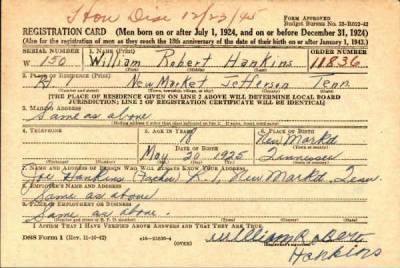 Hon Dis 12/23/45
FORM APPROVED
Budget Bureau No. 33-R012-42
REGISTRATION CARD (Men born on or after July 1, 1924, and on or before December 31, 1924)
(Also for the registration of men as they reach the 18th anniversary of the date of their birth on or after January 1, 1943.)
SERIAL NUMBER 1. NAME (Print) ORDER NUMBER
W 150 William Robert Hankins 11836
2. PLACE OF RESIDENCE (Print)
R1 New Market Jefferson Tenn
(Town, township, village, or city) (County) (State)
[THE PLACE OF RESIDENCE GIVEN ON LINE 2 ABOVE WILL DETERMINE LOCAL BOARD
JURISDICTION; LINE 2 OF REGISTRATION CERTIFICATE WILL BE IDENTICAL]
3. MAILING ADDRESS
Same as above
4. TELEPHONE 5. AGE IN YEARS 6. PLACE OF BIRTH
18 New Market
DATE OF BIRTH
May 20 1925 Tennessee
7. NAME AND ADDRESS OF PERSON WHO WILL ALWAYS KNOW YOUR ADDRESS
Joe Hankins (Father) R.1, New Market, Tenn.
8. EMPLOYER'S NAME AND ADDRESS
Same as above
9. PLACE OF EMPLOYMENT OR BUSINESS
Same as above.
I AFFIRM THAT I HAVE VERIFIED ABOVE ANSWERS AND THAT THEY ARE TRUE.
DSS Form 1 (Rev. 11-16-42) (OVER)
William Robert
Hankins